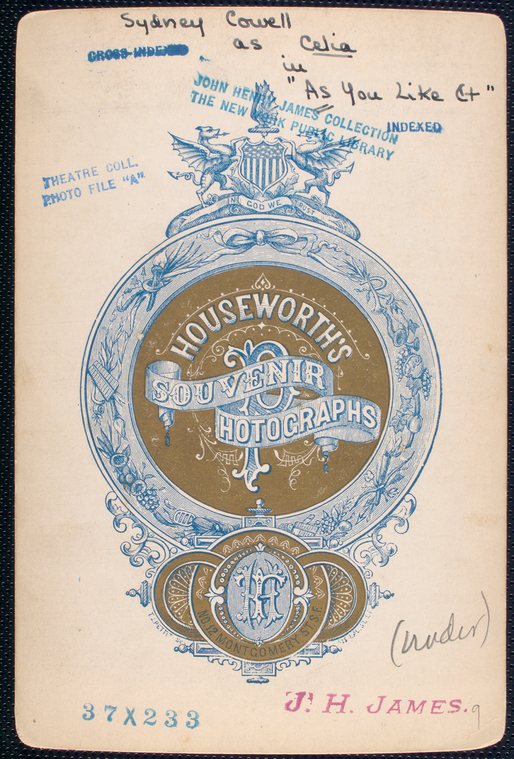 Sydney Cowell
as Celia
in
"As You Like It"
CROSS-INDEXED
JOHN HENRY JAMES COLLECTION
THE NEW YORK PUBLIC LIBRARY
INDEXED
THEATRE COLL.
PHOTO FILE "A"
IN GOD WE TRUST
HOUSEWORTH'S
SOUVENIR
PHOTOGRAPHS
NO 12 MONTGOMERY ST. S.F.
37X233
J. H. JAMES.